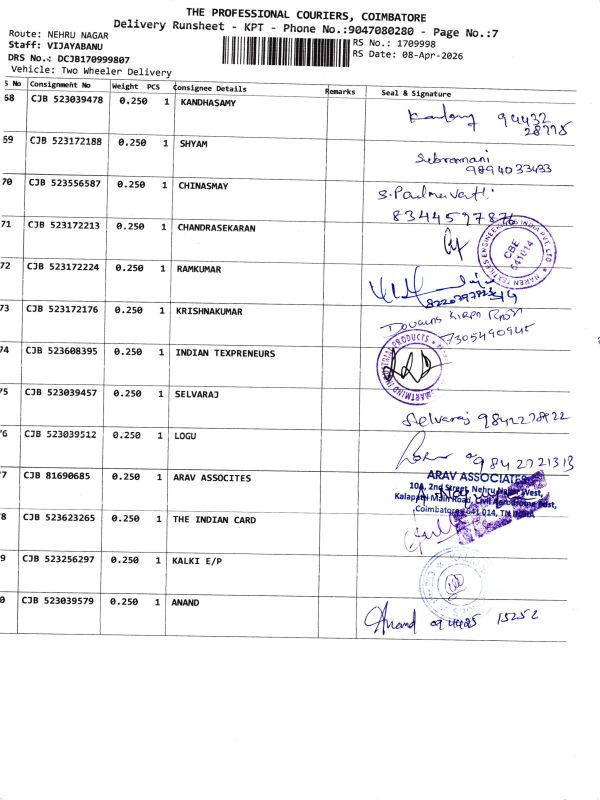 THE PROFESSIONAL COURIERS, COIMBATORE
Delivery Runsheet - KPT - Phone No.:9047080280 - Page No.:7
Route: NEHRU NAGAR
RS No.: 1709998
Staff: VIJAYABANU
RS Date: 08-Apr-2026
DRS No.: DCJB170999807
Vehicle: Two Wheeler Delivery
S No Consignment No Weight PCS Consignee Details Remarks Seal & Signature
68 CJB 523039478 0.250 1 KANDHASAMY
94432
28775
69 CJB 523172188 0.250 1 SHYAM
Subramani
9894033433
70 CJB 523556587 0.250 1 CHINASMAY
S. Padmavathi
8344597876
71 CJB 523172213 0.250 1 CHANDRASEKARAN
NAREN TEXTILES ENGINEERING INDIA PVT LTD
CBE
641014
72 CJB 523172224 0.250 1 RAMKUMAR
73 CJB 523172176 0.250 1 KRISHNAKUMAR
7305490945
74 CJB 523608395 0.250 1 INDIAN TEXPRENEURS
75 CJB 523039457 0.250 1 SELVARAJ
Selvaraj 9842278922
76 CJB 523039512 0.250 1 LOGU
9842721313
77 CJB 81690685 1 ARAV ASSOCITES
0.250
ARAV ASSOCIATES
10A, 2nd Street, Nehru Nagar West,
Kalapatti Main Road, Civil Aerodrome Post,
Coimbatore 641 014, TN INDIA
78 CJB 523623265 0.250 1 THE INDIAN CARD
9 CJB 523256297 0.250 1 KALKI E/P
0 CJB 523039579 0.250 1 ANAND
Anand 094425 15252